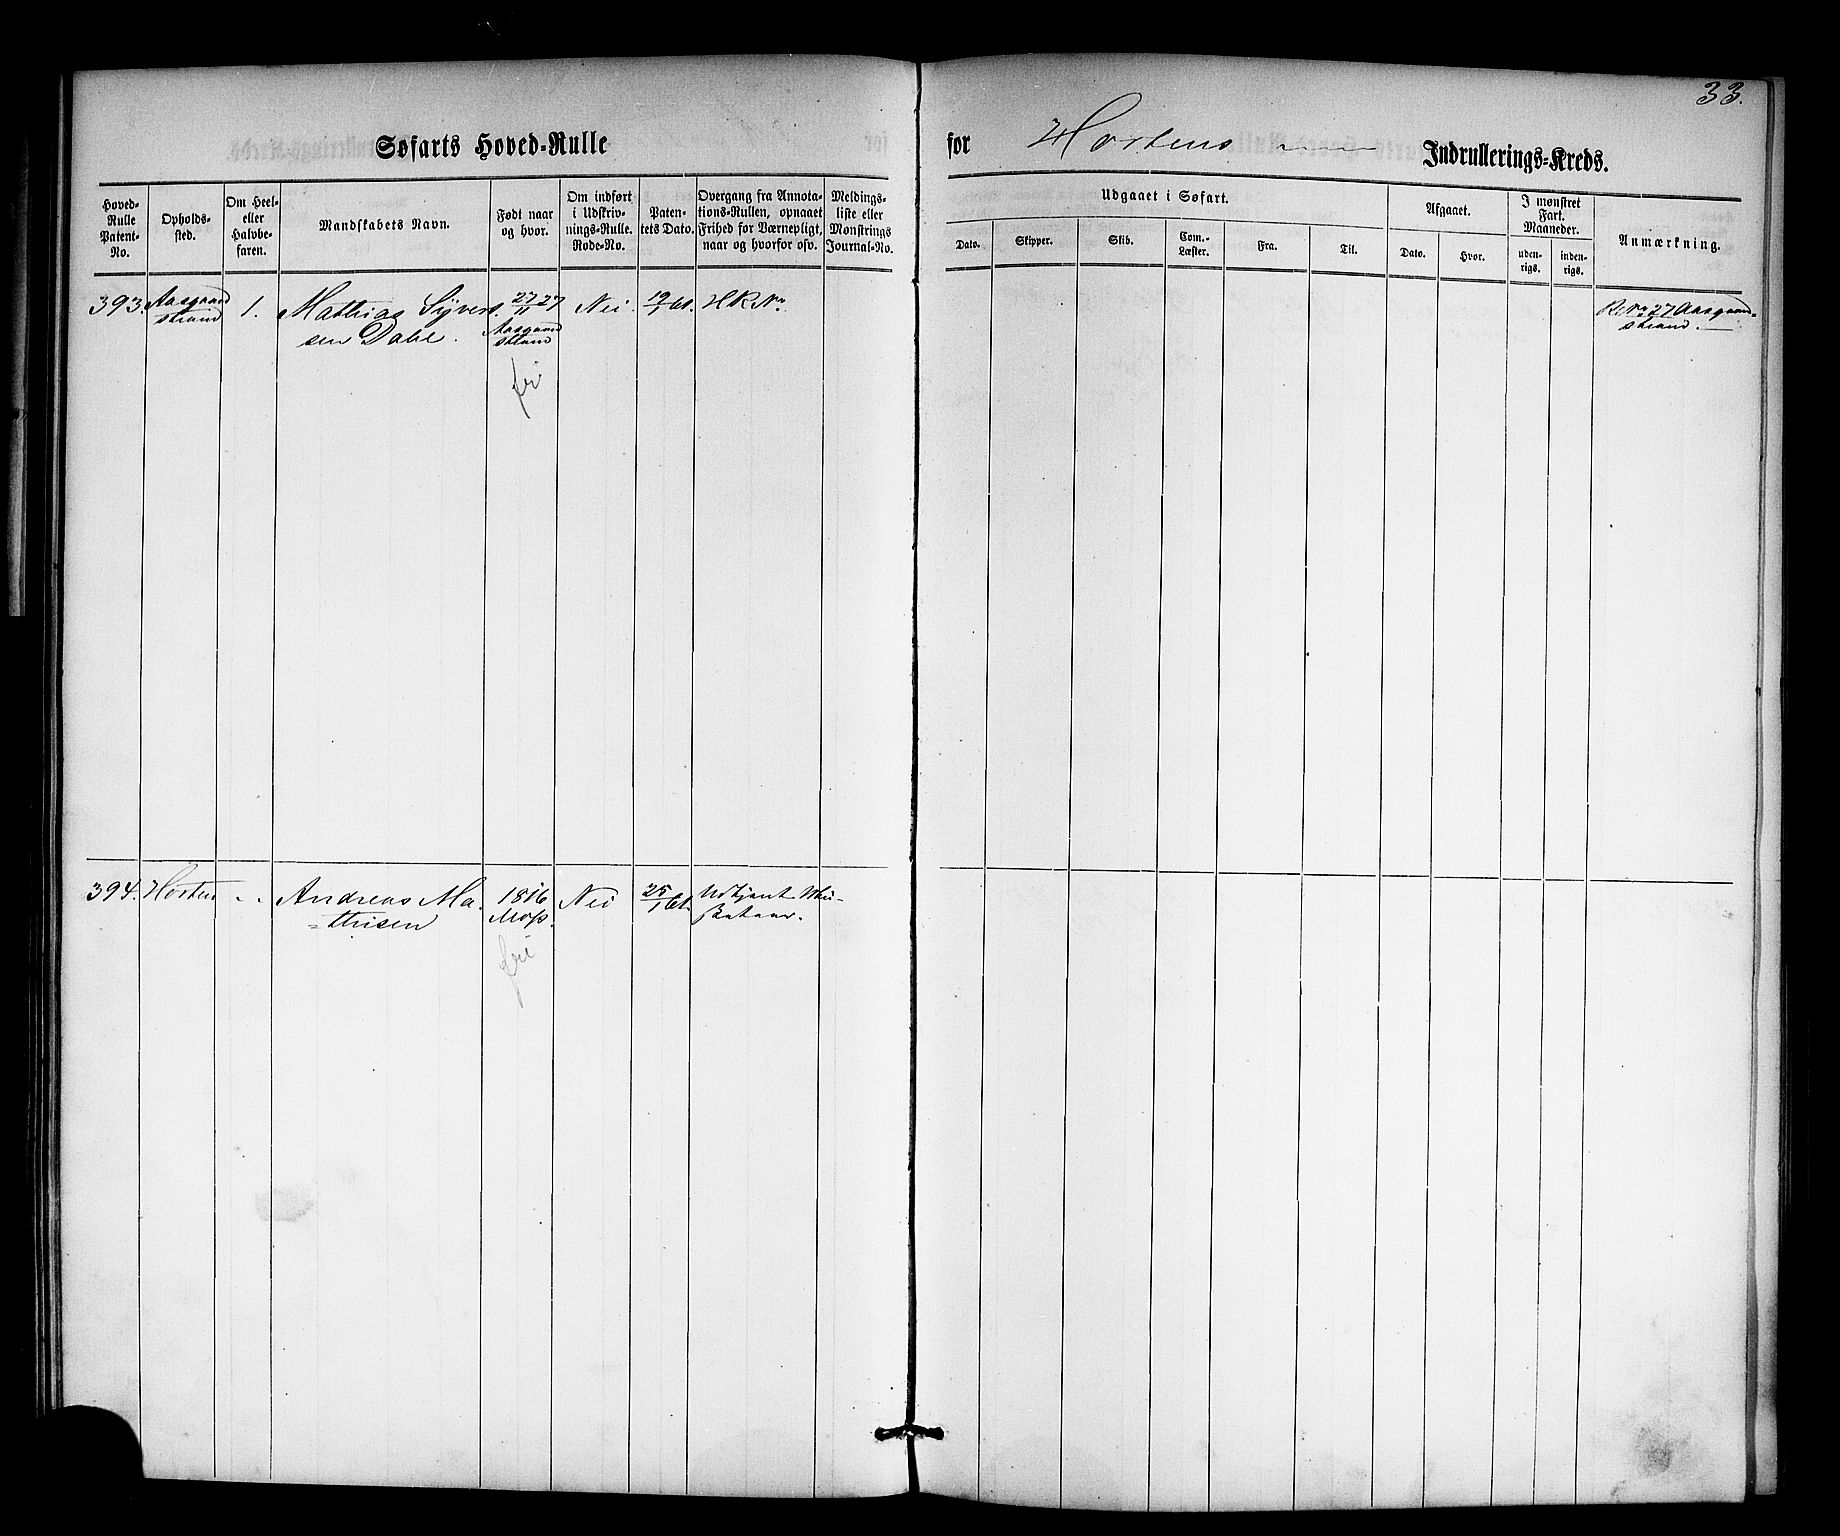 33.
Søfarts Hoved-Rulle for Hortens Indrullerings-Kreds.
Hoved-
Rulle
Patent-
No.
Opholds-
sted.
Om Heel-
eller
Halvbe-
faren.
Mandskabets Navn.
Født naar
og hvor.
Om indført
i Udskriv-
nings-Rulle.
Rode-No.
Paten-
tets Dato.
Overgang fra Annota-
tions-Rullen, opnaaet
Frihed for Værnepligt,
naar og hvorfor osv.
Meldings-
liste eller
Mønstrings
Journal-No.
Udgaaet i Søfart.
Dato.
Skipper.
Skib.
Com.-
Læster.
Fra.
Til.
Afgaaet.
Dato.
Hvor.
I mønstret
Fart.
Maaneder.
uden-
rigs.
inden-
rigs.
Anmærkning.
393.
Aasgaard
strand
1.
Mathias Syvert
sen Dahl.
27/11 27
Aasgaard
strand
fri
Nei
19/1 61.
H R No
R. No 27 Aasgaard-
strand.
394.
Horten
Andreas Ma-
thisen
1816
Moss.
fri
Nei
25/1 61.
Udtjent